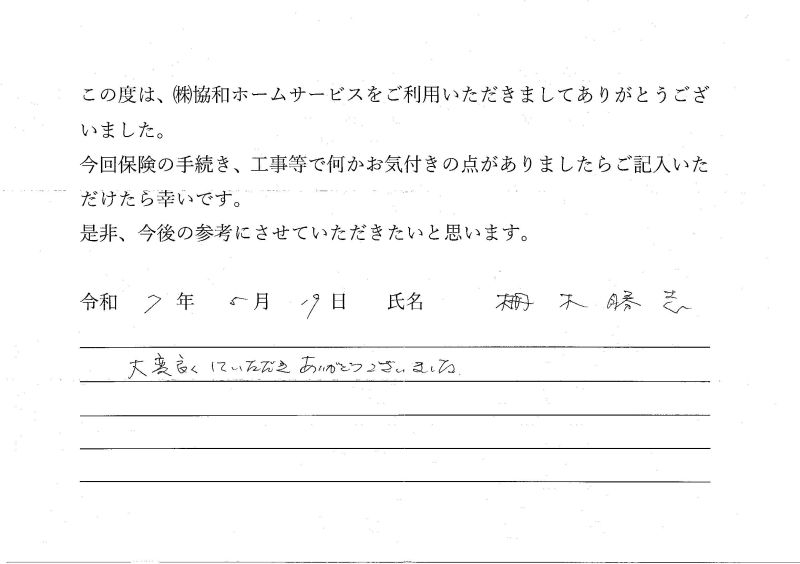 この度は、㈱協和ホームサービスをご利用いただきましてありがとうござ
いました。
今回保険の手続き、工事等で何かお気付きの点がありましたらご記入いた
だけたら幸いです。
是非、今後の参考にさせていただきたいと思います。
令和 7 年 5 月 19 日 氏名 栂木勝志
大変良くしていただきありがとうございました。